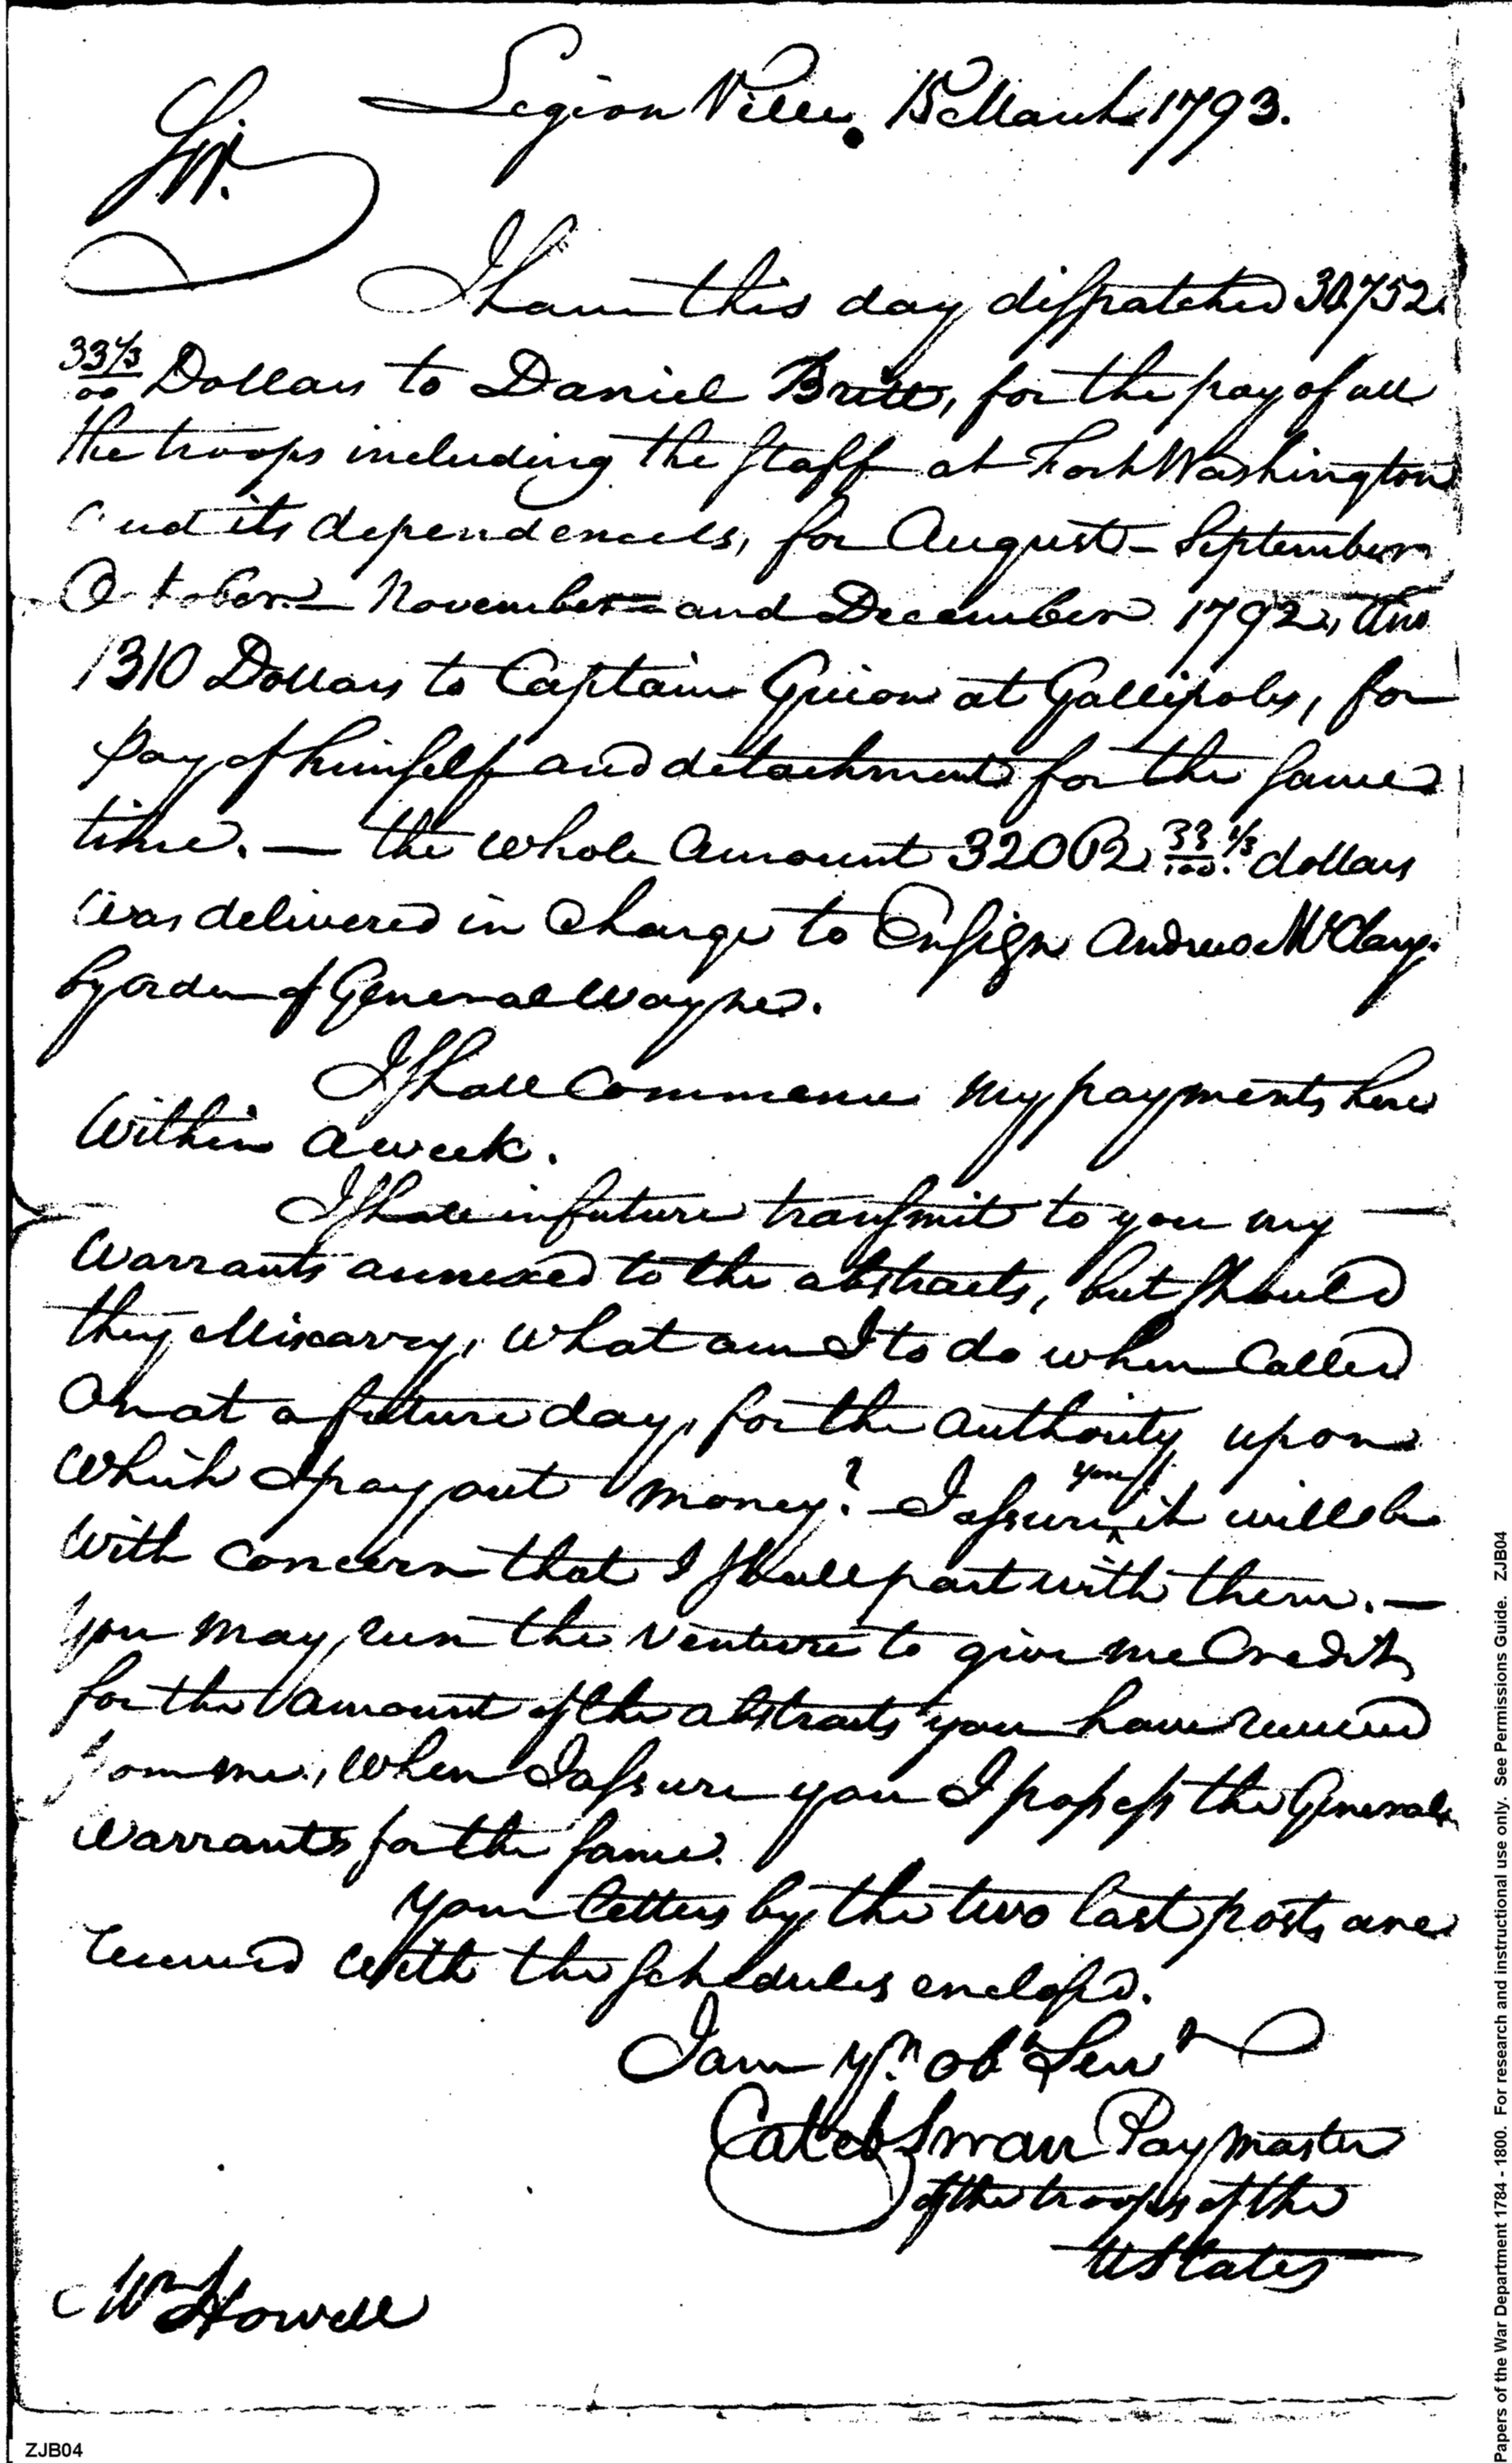 Legion Ville. 15 March 1793.
Sir.
I have this day disspatched 30.752.
33 1/3/00 Dollars to Daniel Britt, for the pay of all
the troops including the staff at Fort Washington
and its dependencies, for August - September
October - November = and December 1792, And
1310 Dollars to Captain Guion at Gallipolis, for
pay of himself and detachment for the same
time. — the whole Amount 32062 33/100 1/3 dollars
was delivered in Charge to Ensign Andrew McClary.
by order of General Wayne.
I shall Commence my payments here
within a week.
I shall in future transmit to you my —
Warrants annexed to the abstracts, but should
they Miscarry, what am I to do when Called
On at a future day, for the authority upon
which I pay out money? - I assure you it will be
with concern that I shall part with them. —
You may run the Venture to give me Credit
for the amount of the abstracts you have received
from me, when I assure you I possess the Generals
Warrants for the same.
Your letters by the two last posts are
received with the schedules enclosd.
I am Yr. obt Servt
Caleb Swan Paymaster
of the troops of the
UStates
Mr Howell
ZJB04
Papers of the War Department 1784 - 1800. For research and instructional use only. See Permissions Guide. ZJB04